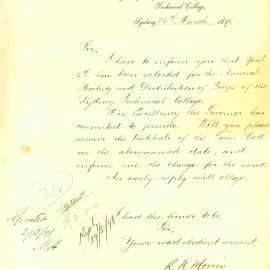 Technical College,
Sydney, 26th March, 189
Sir,
I have to inform you that April
5th has been selected for the Annual
Meeting and Distribution of Prizes of the
Sydney Technical College.
His Excellency the Governor has
consented to preside. Will you please
reserve the Vestibule of the Town Hall
on the abovenamed date, and
inform me the charge for the same.
An early reply will oblige.
I have the honor to be,
Sir,
Your most obedient servant,